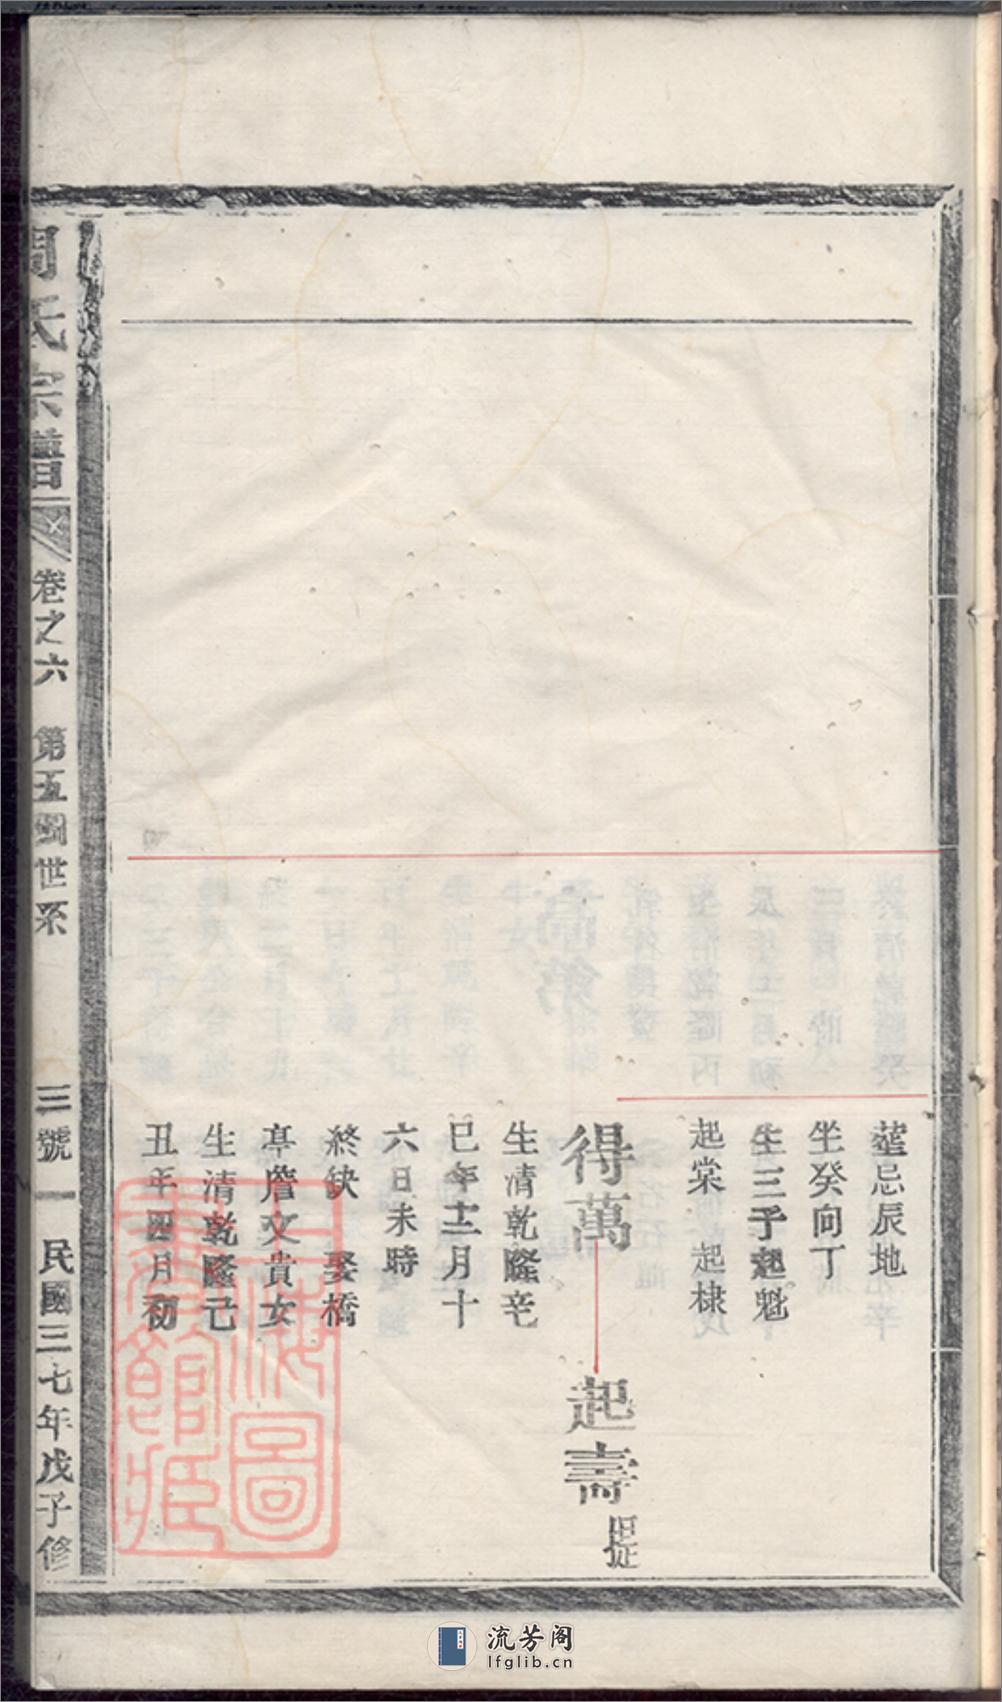 塟忌辰地
坐癸向丁
生三子起魁
起棠 起棣
得萬
起壽 提
生清乾隆辛
巳年十二月十
六日未時
終缺 娶橋
亭詹文貴女
生清乾隆己
丑年四月初
周氏宗譜
卷之六 第五圖世系
三號 一 民國三七年戊子修
上海圖
書館藏
流芳阁
lfglib.cn